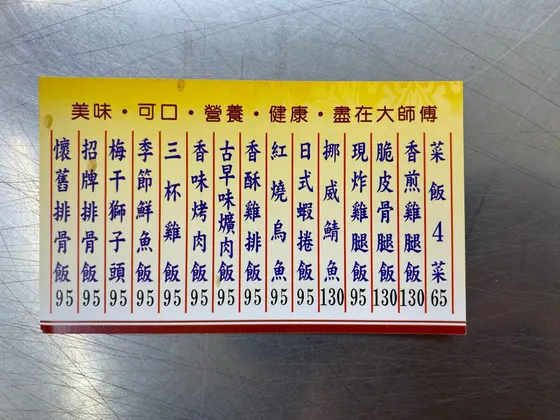 美味・可口・營養・健康・盡在大師傅
菜飯4菜65
香煎雞腿飯130
脆皮骨腿飯130
現炸雞腿飯95
挪威鯖魚130
日式蝦捲飯95
紅燒烏魚95
香酥雞排飯95
古早味爌肉飯95
香味烤肉飯95
三杯雞飯95
季節鮮魚飯95
梅干獅子頭95
招牌排骨飯95
懷舊排骨飯95